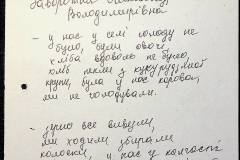 Володимирівна
- у нас у семї голоду не
було, були овочі,
хліба вдоволь не було,
хліб пекли з кукурудзяної
крупи, була у нас корова,
ми не голодували.
- зерно все вивезли,
ми ходили збирали
колоски, у нас у колгоспі